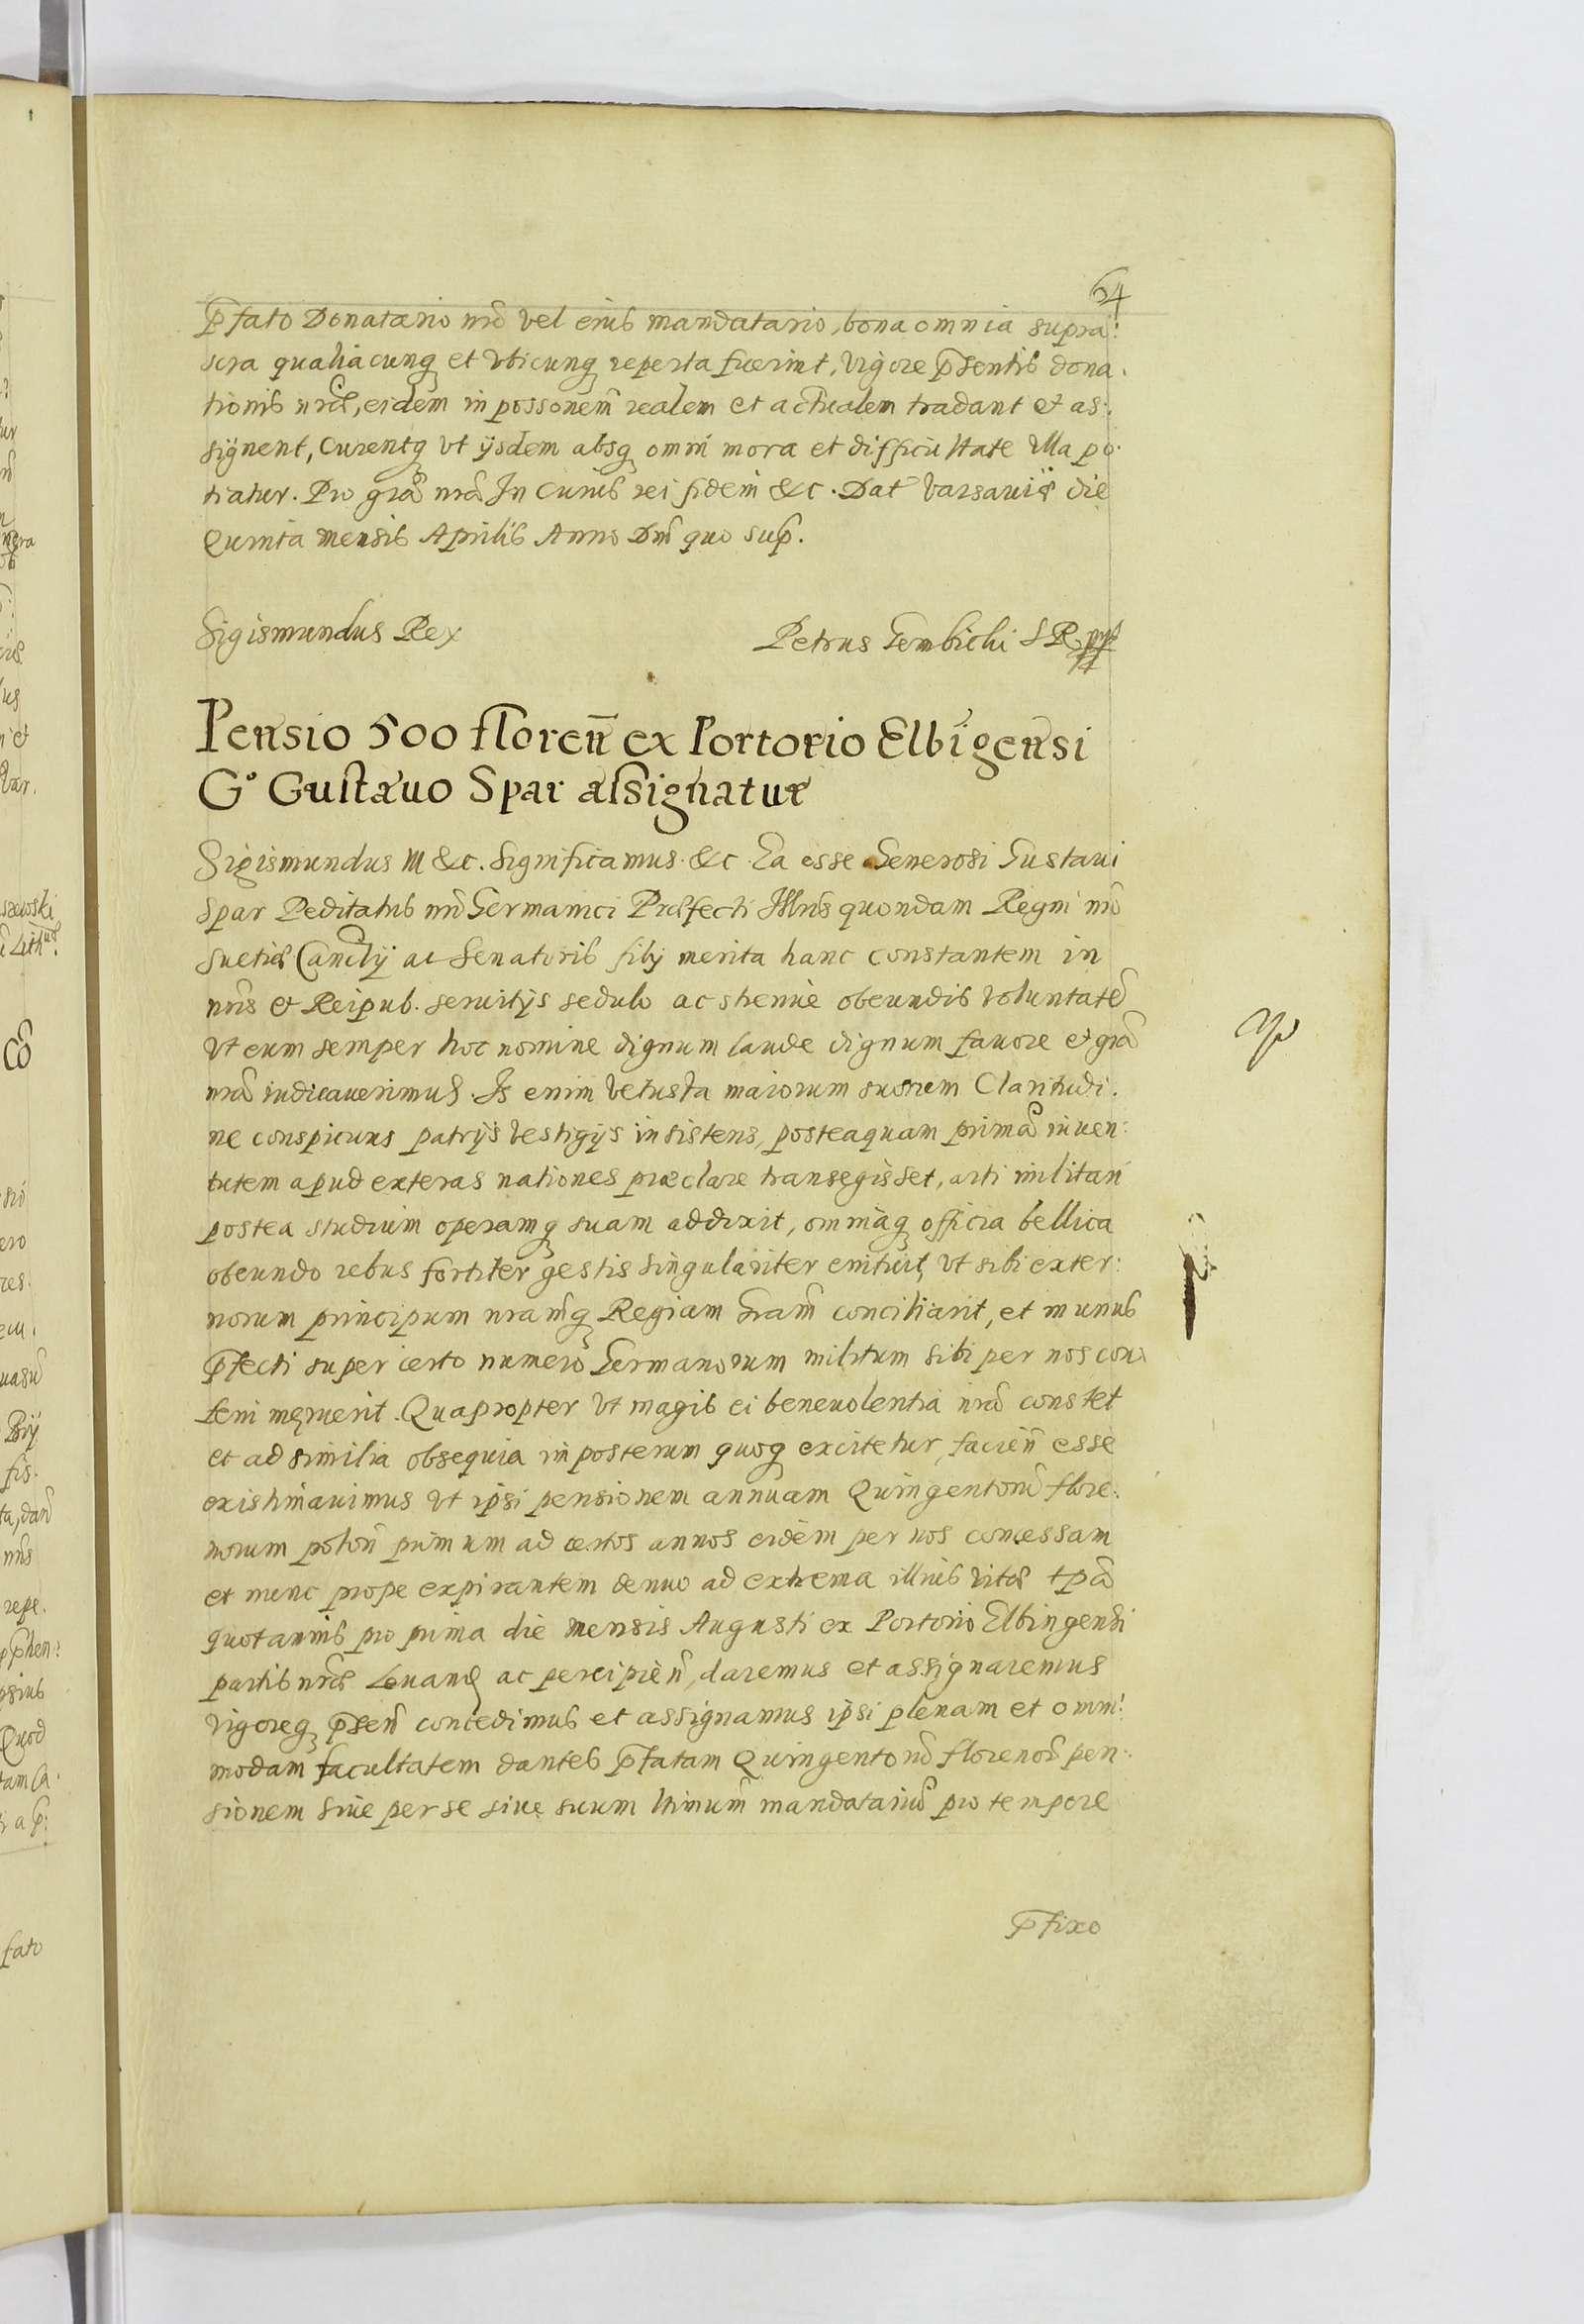 64
p̄fato Donatario nr̄o vel eius mandatario, bona omnia supra:
scra qualiacunq et vbicunq reperta fuerint, vigore p̄sentis dona.
tionis nr̄æ, eidem in possonem̄ realem et actualem tradant et as:
signent, Curentq vt ijsdem absq omni mora et difficultate illa po.
tiatur. Pro gr̄a nr̄a In cuius rei fidem &c. Dat Varsauiæ die
Quinta mensis Aprilis Anno Dn̄i quo sup̄.
Sigismundus Rex
Petrus Gembicki S R
Pensio 500 floren̄ ex Portorio Elbigensi
G° Gustauo Spar assignatur
Sigismundus III &c. Significamus &c Ea esse Generosi Gustaui
Spar Peditatus nr̄i Germanici Præfecti Illris quondam Regni nr̄o
Suetiæ Canclij ac Senatoris filij merita hanc constantem in
nr̄is et Reipub. seruitijs sedulo ac strenue obeundis voluntatē
vt eum semper hoc nomine dignum laude dignum fauore et gr̄a
nr̄a iudicauerimus. Is enim vetusta maiorum suorum Claritudi.
ne conspicuus patrijs vestigijs insistens, posteaquam primā iuuen:
tutem apud exteras nationes præclare transegisset, arti militari
postea studium operamq suam addixit, omniaq officia bellica
obeundo rebus fortiter gestis singulariter enituit, vt sibi exter:
norum principum nramq Regiam Gram̄ conciliarit, et munus
p̄fecti super certo numero Germanorum militum sibi per nos con:
feri meruerit. Quapropter vt magis ei beneuolentia nr̄a constet
et ad similia obsequia in posterum quoq excitetur, facien̄ esse
existimauimus vt ipsi pensionem annuam Quingentorū flore:
norum polon̄ primum ad certos annos eidem per nos concessam
et nunc prope expirantem denuo ad extrema illius vitæ tp̄a
quotannis pro prima die mensis Augusti ex Portorio Elbingensi
partis nr̄æ Leuand ac percipien̄, daremus et assignaremus
vigoreq p̄sen̄ concedimus et assignamus ipsi plenam et omni:
modam facultatem dantes p̄fatam Quingentorū florenorū pen:
sionem siue per se siue suum ltimum̄ mandatariū pro tempore
p̄fixo